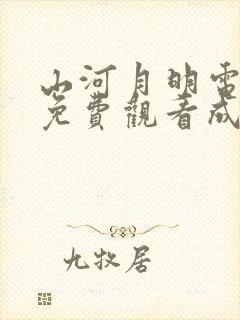 山河月明電
免費觀看成
九牧居